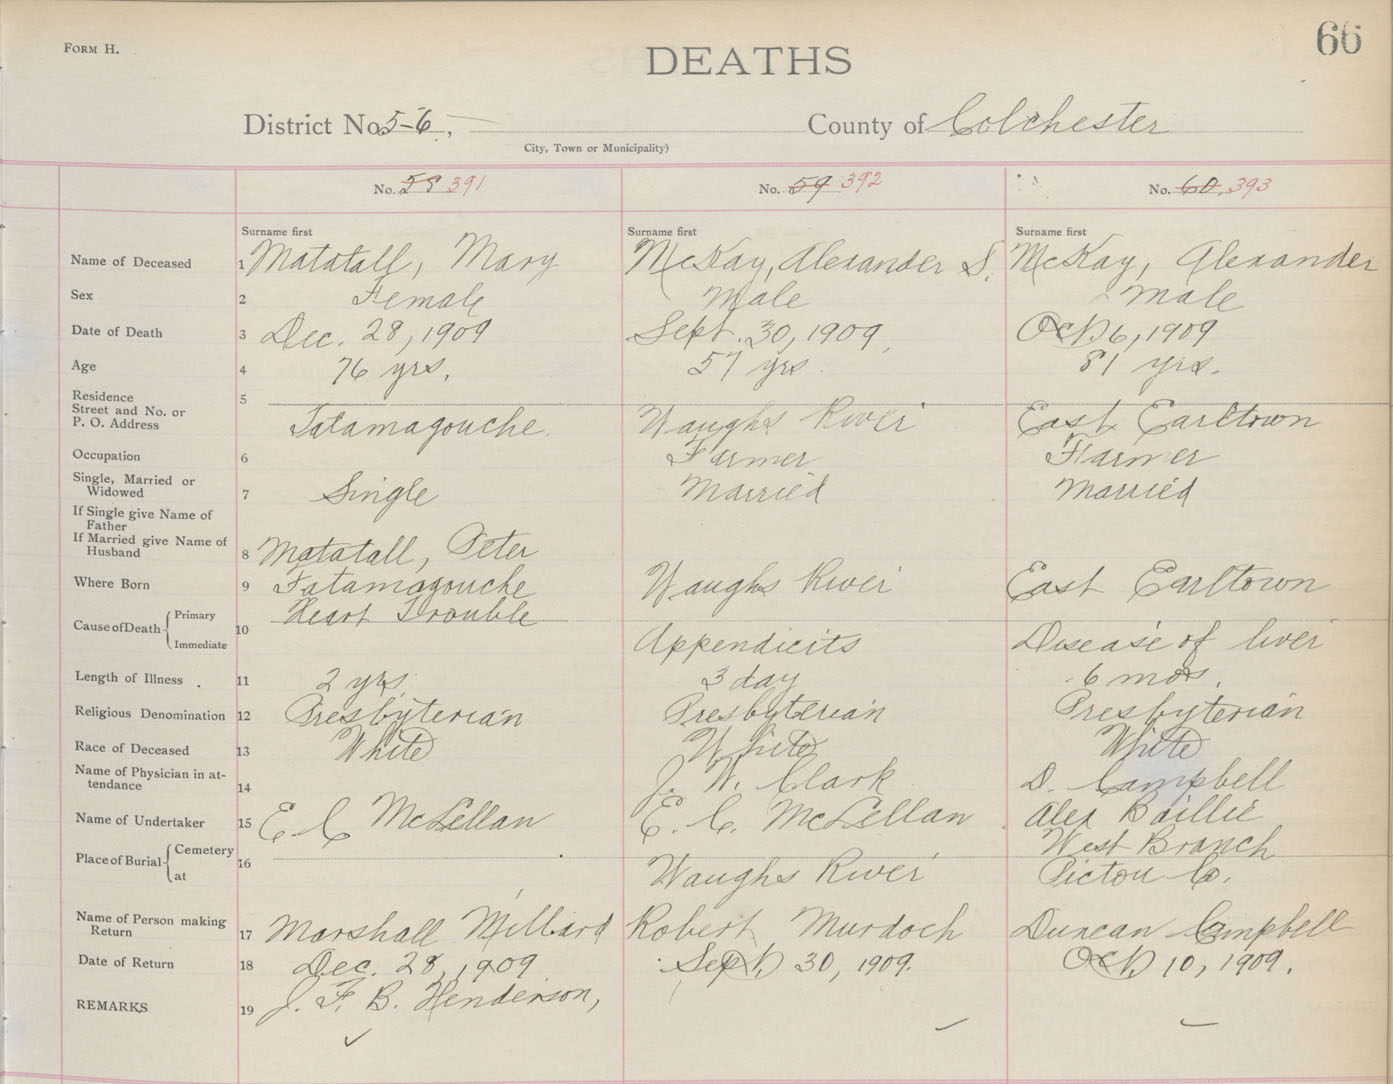 66
FORM H.
DEATHS
District No. 5-6, County of Colchester
City, Town or Municipality)
No. 58 391 No. 59 392 No. 60. 393
Surname first Surname first Surname first
Name of Deceased 1 Matatall, Mary McKay, Alexander S. McKay, Alexander
Sex 2 Female Male Male
Date of Death 3 Dec. 28, 1909 Sept. 30, 1909, Oct. 6, 1909
Age 4 76 yrs. 57 yrs. 81 yrs.
Residence 5
Street and No. or
P. O. Address Tatamagouche. Waughs River East Earltown
Occupation 6 Farmer Farmer
Single, Married or
Widowed 7 Single Married Married
If Single give Name of
Father
If Married give Name of
Husband 8 Matatall, Peter
Where Born 9 Tatamagouche Waughs River East Earltown
Cause of Death Primary Heart Trouble
10
Immediate Appendicits Disease of liver
Length of Illness . 11 2 yrs. 3 day 6 mos.
Religious Denomination 12 Presbyterian Presbyterian Presbyterian
Race of Deceased 13 White White White
Name of Physician in at-
tendance 14 J. W. Clark D. Campbell
Name of Undertaker 15 E. C McLellan E. C. McLellan Alex Baillie
Place of Burial Cemetery West Branch
16
at Waughs River Pictou Co.
Name of Person making
Return 17 Marshall Millard Robert Murdoch Duncan Campbell
Date of Return 18 Dec. 28, 1909 Sept. 30, 1909. Oct. 10, 1909.
REMARKS 19 J. F. B. Henderson,